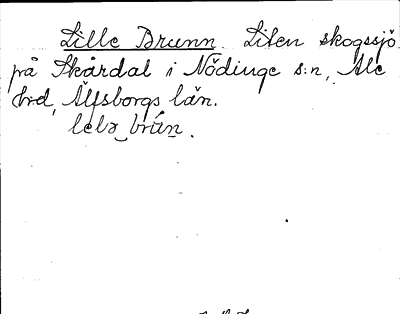 Lille Brunn. Liten skogssjö
på Skårdal i Nödinge s:n, Ale
hrd, Älfsborgs län.
lelə_brùn.